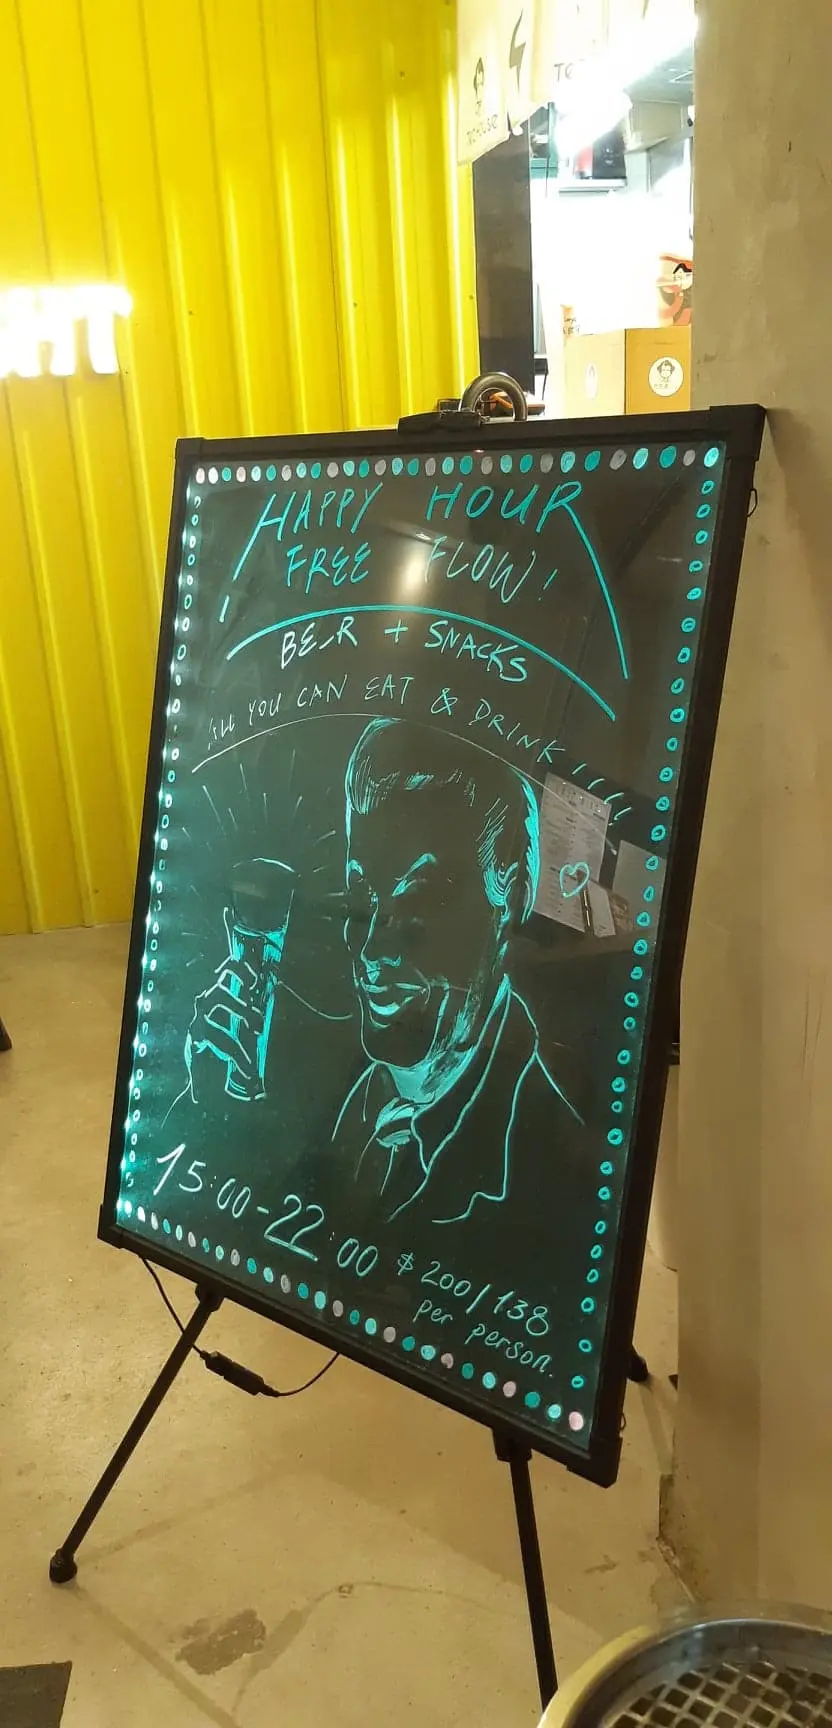 HAPPY HOUR
FREE FLOW!
BEER + SNACKS
ALL YOU CAN EAT & DRINK !!!!
15:00-22:00
$ 200/138
per person.